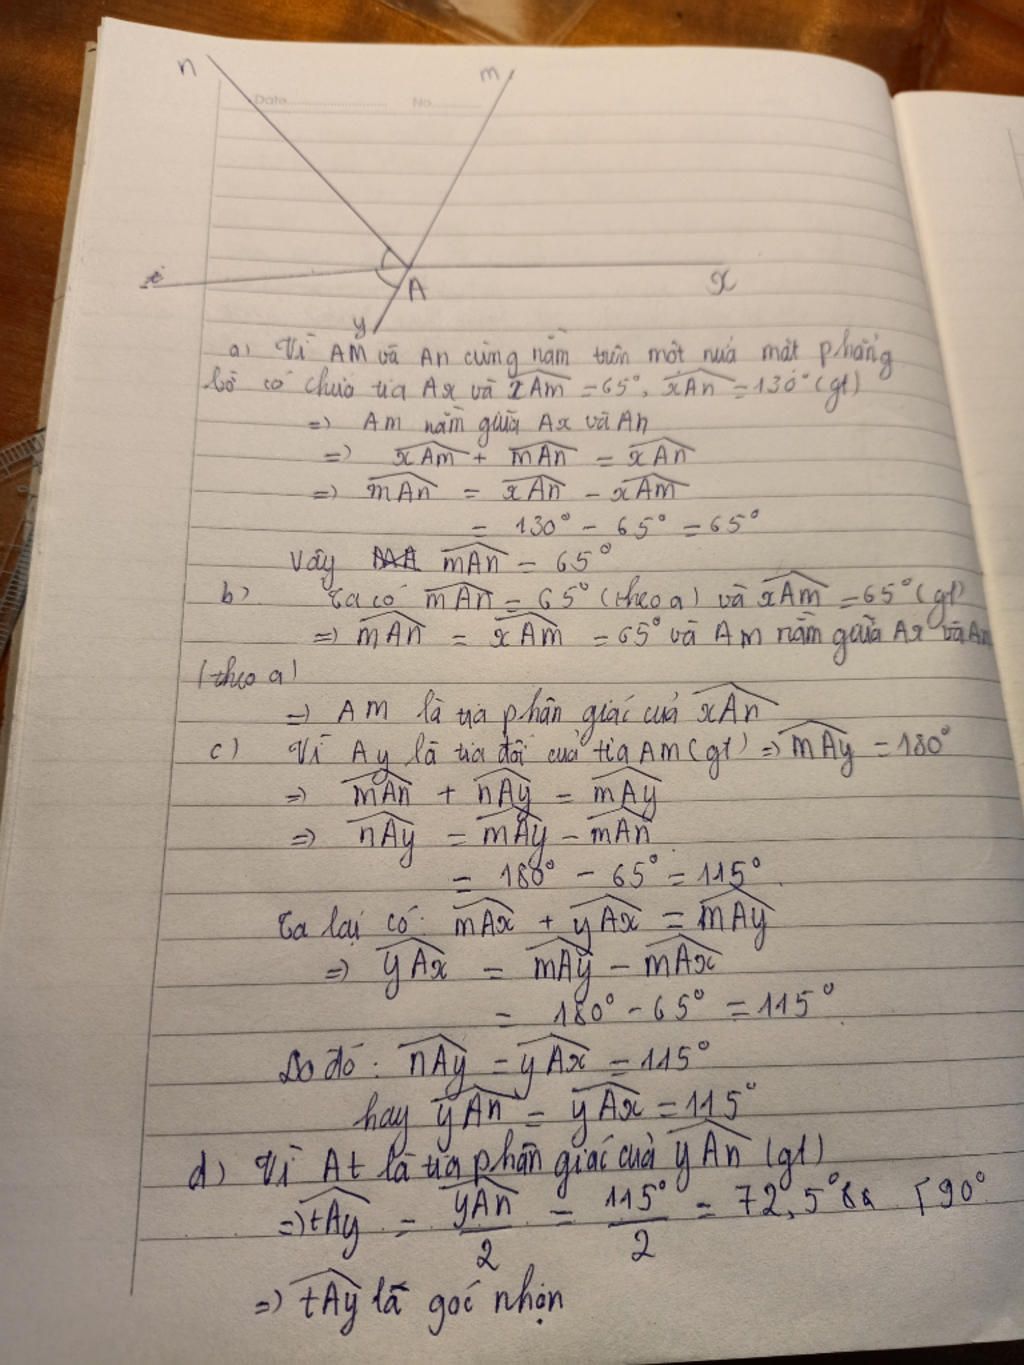 n
m
Date
No
t
A
x
y
a) Vì AM và An cùng nằm trên một nửa mặt phẳng
bờ có chứa tia Ax và xAm = 65°, xAn = 130° (gt)
=> Am nằm giữa Ax và An
=> xAm + mAn = xAn
=> mAn = xAn - xAm
= 130° - 65° = 65°
Vậy mAn = 65°
b) Ta có mAn = 65° (theo a) và xAm = 65° (gt)
=> mAn = xAm = 65° và Am nằm giữa Ax và An
(theo a)
=> AM là tia phân giác của xAn
c) Vì Ay là tia đối của tia Am (gt) => mAy = 180°
=> mAn + nAy = mAy
=> nAy = mAy - mAn
= 180° - 65° = 115°
Ta lại có: mAx + yAx = mAy
=> yAx = mAy - mAx
= 180° - 65° = 115°
Do đó: nAy = yAx = 115°
hay yAn = yAx = 115°
d) Vì At là tia phân giác của yAn (gt)
=> tAy = yAn/2 = 115°/2 = 72,5° 90°
=> tAy là góc nhọn